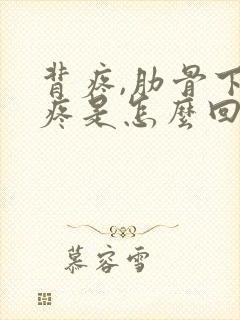 背疼,肋骨下
疼是怎麼回
慕容雪